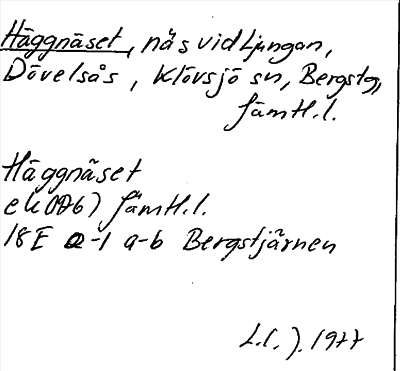 Häggnäset, näs vid Ljungan,
Dövelsås, Klövsjö sn, Bergs tg,
Jämtl. l.
Häggnäset
ek (1976) Jämtl. l.
18E 0-1 a-b Bergstjärnen
1977